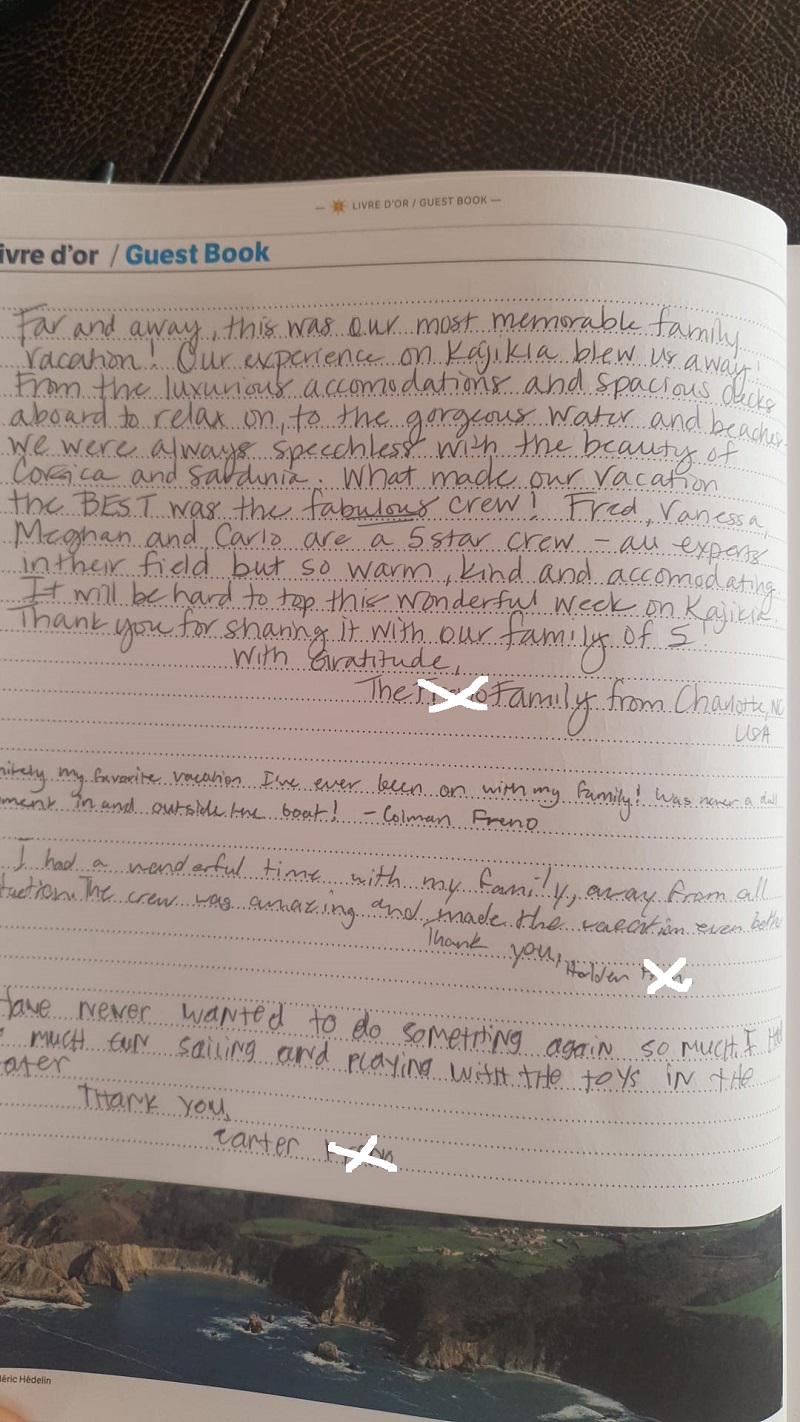 LIVRE D'OR / GUEST BOOK
ivre d'or / Guest Book
Far and away, this was our most memorable family
vacation! Our experience on Kajikia blew us away!
From the luxurious accomodations and spacious decks
aboard to relax on, to the gorgeous water and beaches
we were always speechless with the beauty of
Corsica and Sardinia. What made our vacation
the BEST was the fabulous crew! Fred, Vanessa,
Meghan and Carlo are a 5 star crew - all experts
in their field but so warm, kind and accomodating.
It will be hard to top this wonderful week on Kajikia.
Thank you for sharing it with our family of 5!
With Gratitude,
The Family from Charlotte, NC
USA
nitely my favorite vacation I've ever been on with my family! Was never a dull
ment in and outside the boat! - Colman Freno
I had a wonderful time with my family, away from all
The crew was amazing and made the vacation even bette
Thank you,
Holden
Have never wanted to do something again so much. I had
much fun sailing and playing with the toys in the
ater
Thank you,
Carter
éric Hédelin